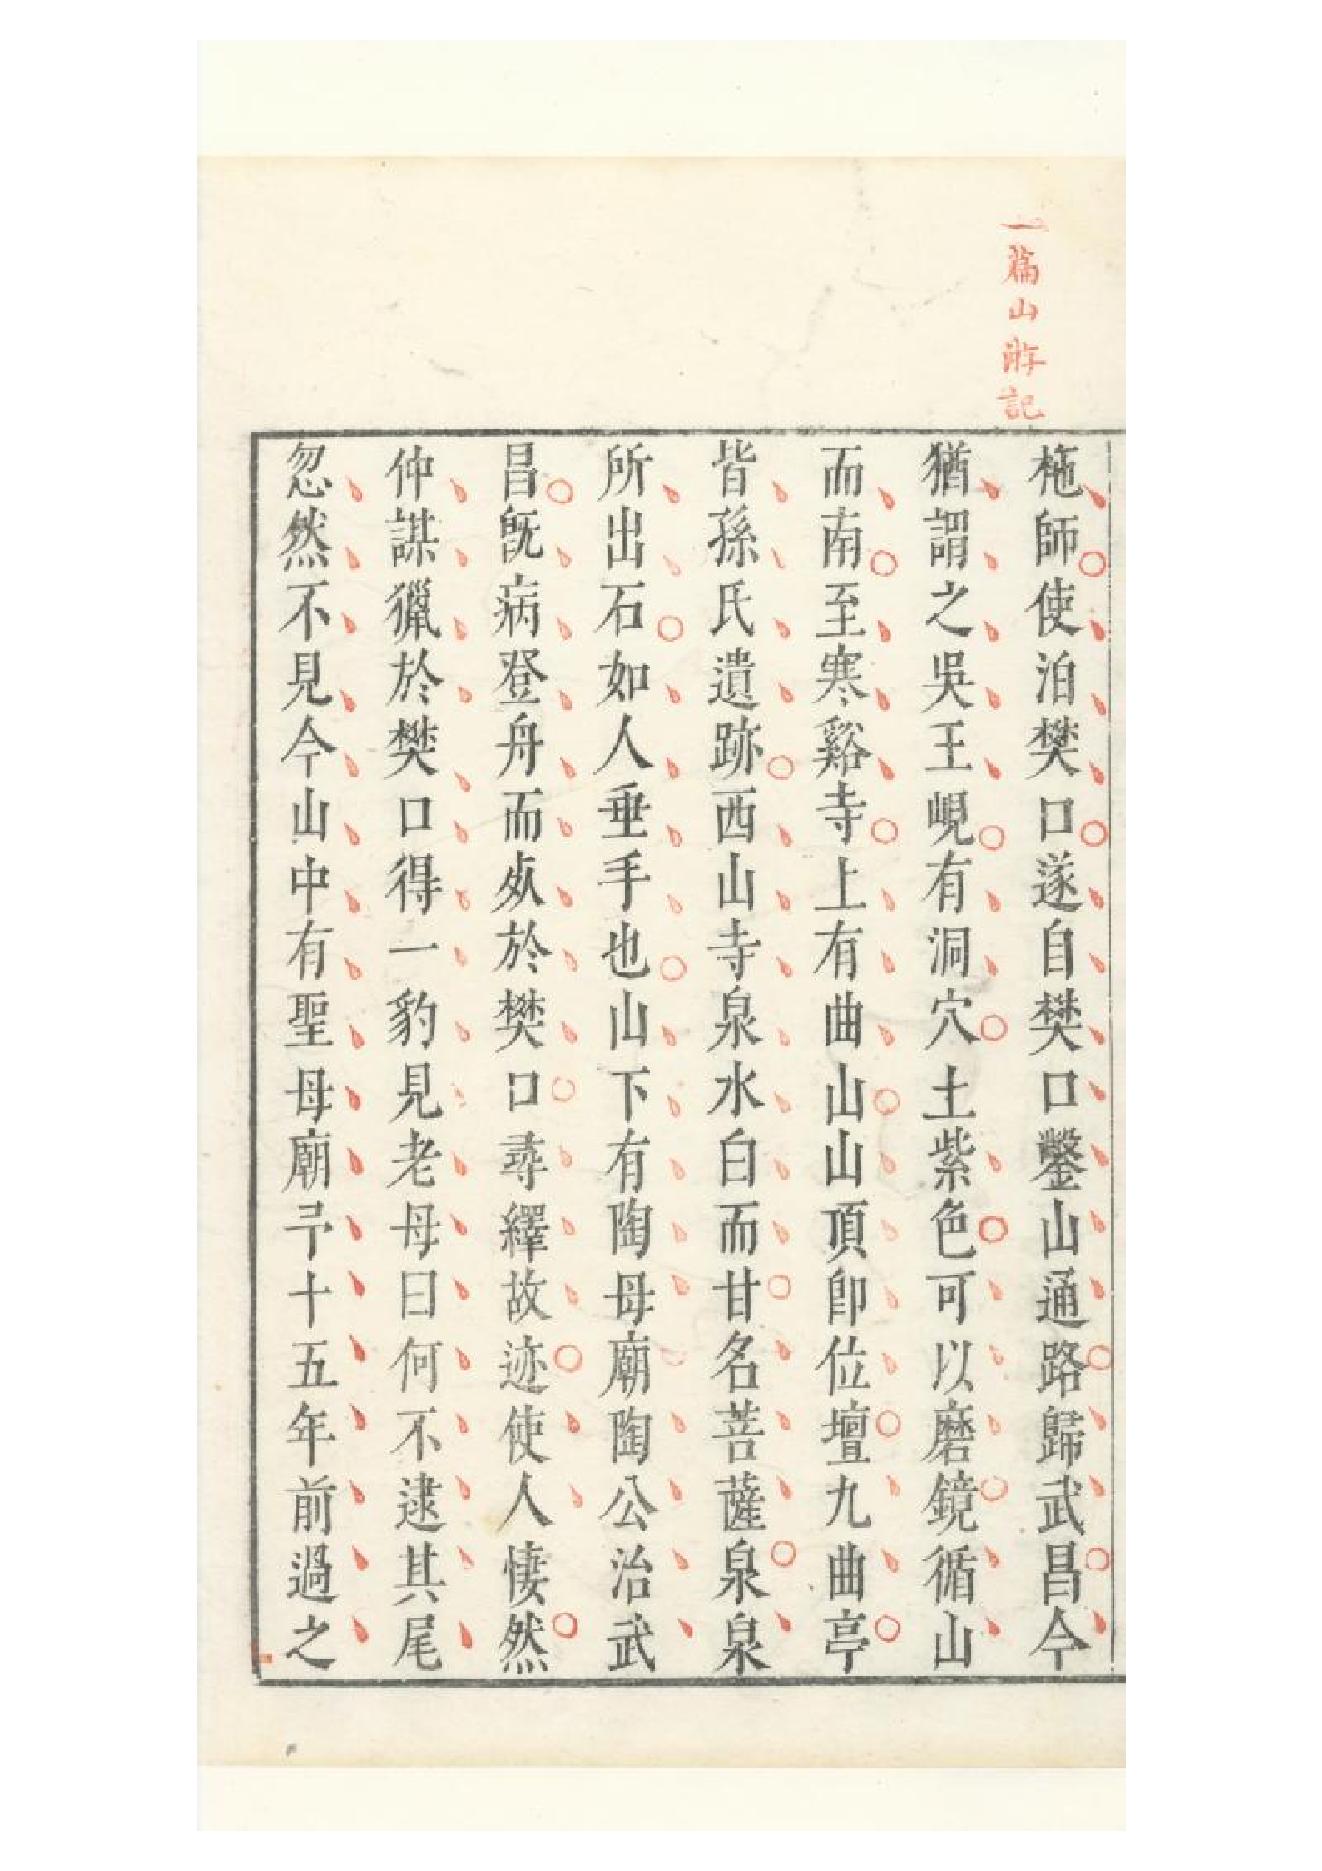 一篇山游記
柂師使泊樊口遂自樊口鑿山通路歸武昌今
猶謂之吳王峴有洞穴土紫色可以磨鏡循山
而南至寒谿寺上有曲山山頂卽位壇九曲亭
皆孫氏遺跡西山寺泉水白而甘名菩薩泉泉
所出石如人垂手也山下有陶母廟陶公治武
昌旣病登舟而死於樊口尋繹故迹使人悽然
仲謀獵於樊口得一豹見老母曰何不逮其尾
忽然不見今山中有聖母廟予十五年前過之